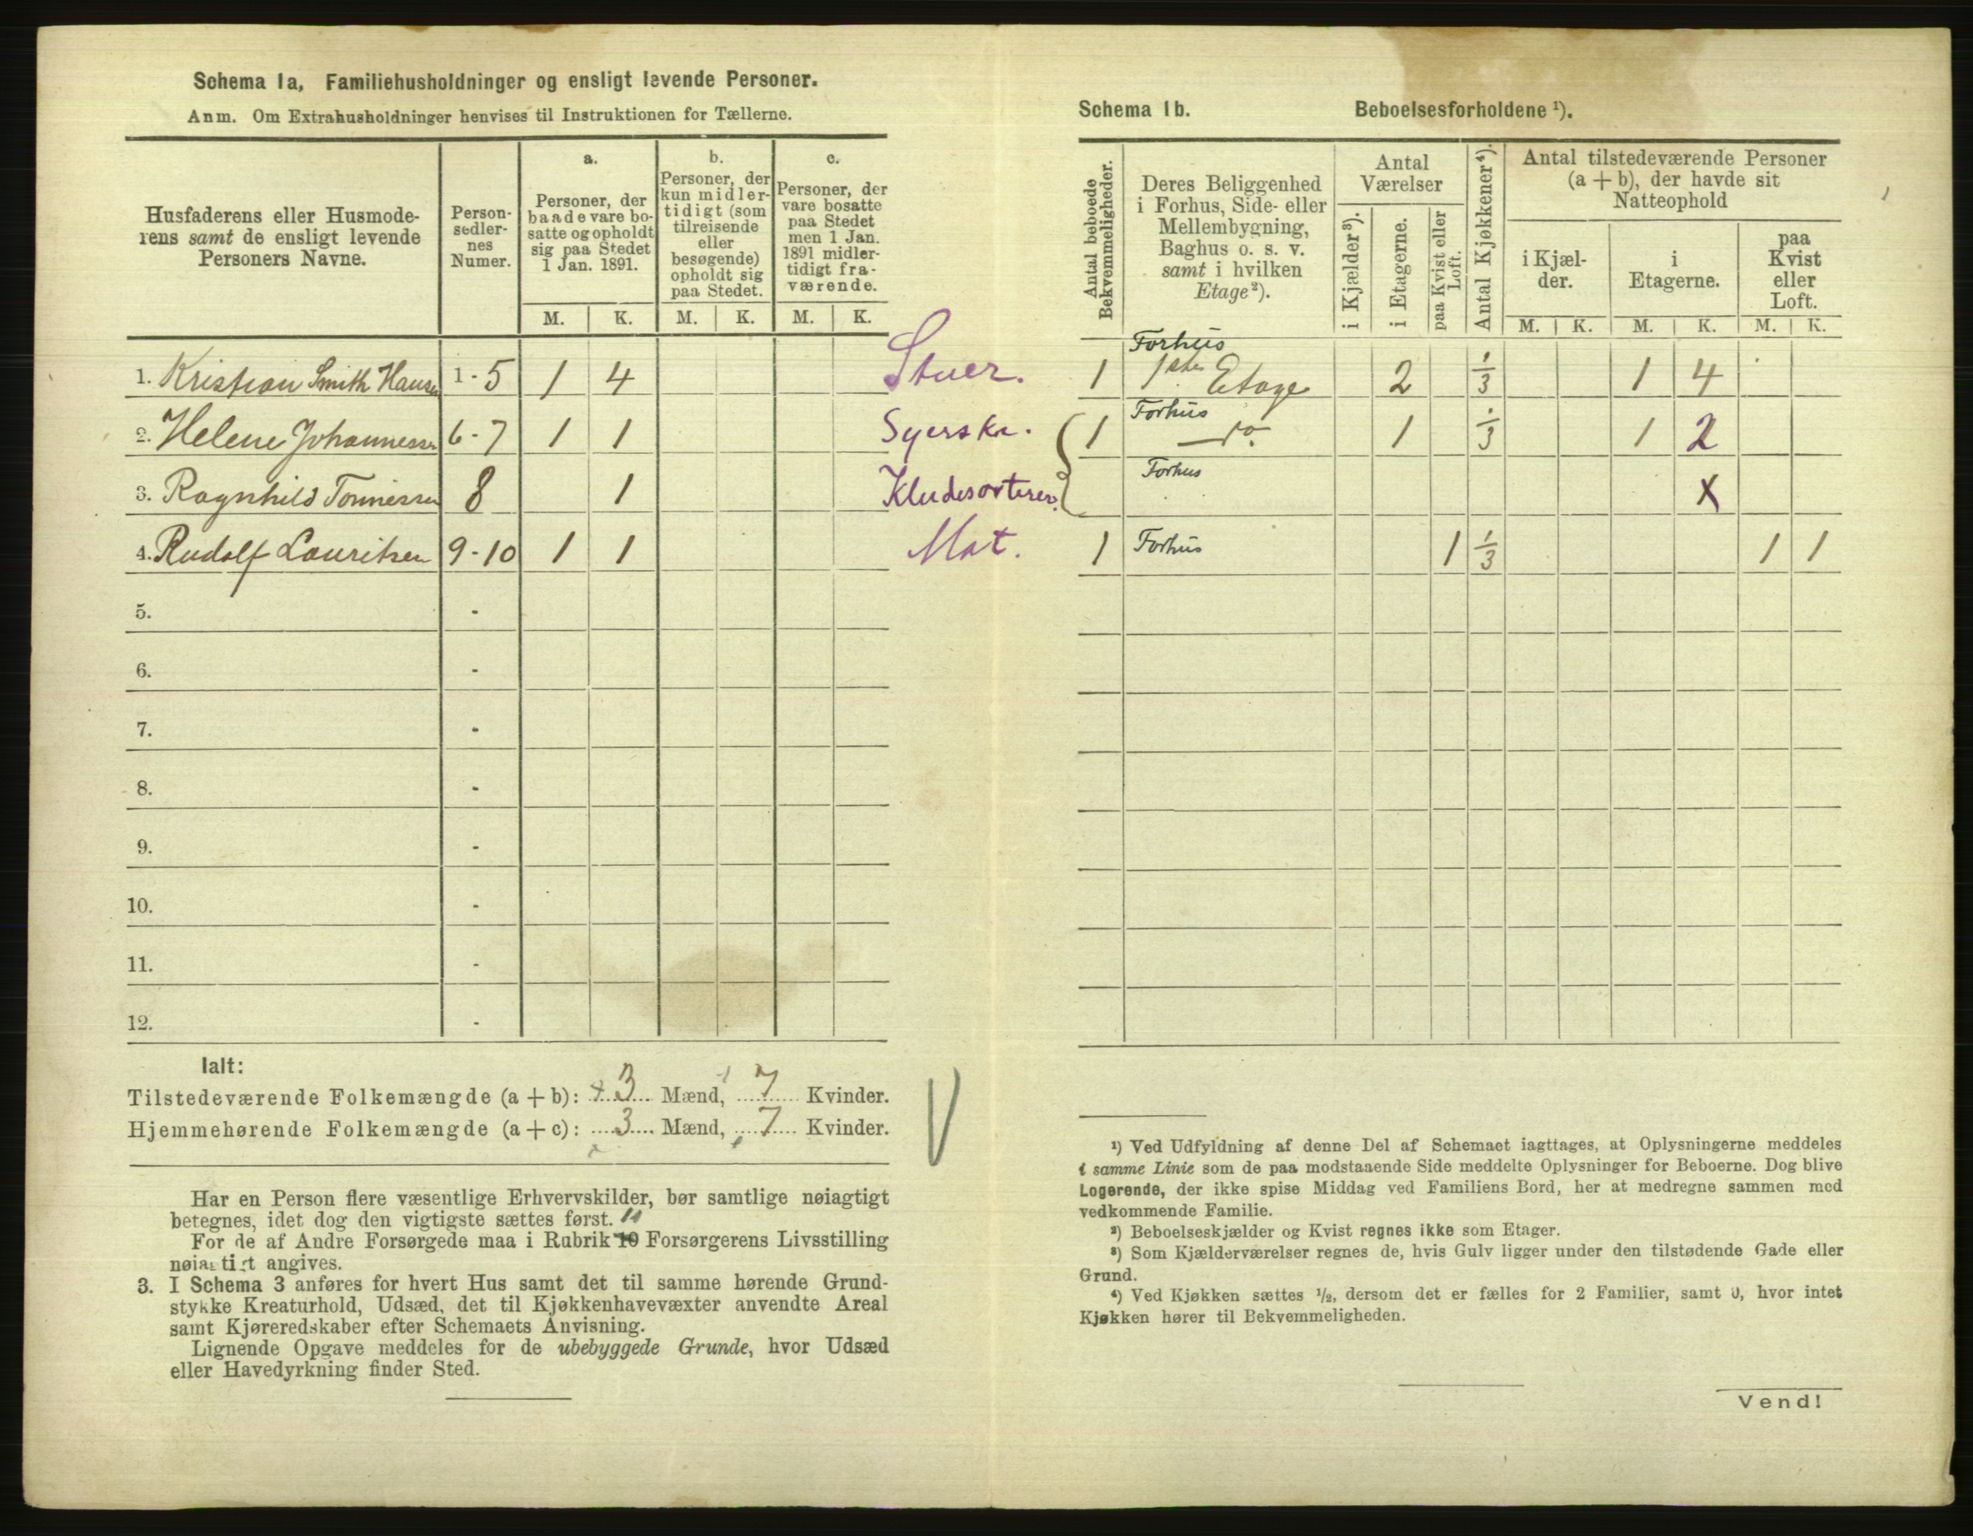 Schema 1a, Familiehusholdninger og ensligt levende Personer.
Anm. Om Extrahusholdninger henvises til Instruktionen for Tællerne.
Husfaderens eller Husmode-
rens samt de ensligt levende
Personers Navne.
Person-
sedler-
nes
Numer.
a.
Personer, der
baade vare bo-
satte og opholdt
sig paa Stedet
1 Jan. 1891.
b.
Personer, der
kun midler-
tidigt (som
tilreisende
eller
besøgende)
opholdt sig
paa Stedet.
c.
Personer, der
vare bosatte
paa Stedet
men 1 Jan.
1891 midler-
tidigt fra-
værende.
M. K. M. K. M. K.
1. Kristian Smith Hansen 1-5 1 4 Stuer.
2. Helene Johannessen 6-7 1 1 Syerske.
3. Ragnhild Tønnessen 8 1 Kludesorterer.
4. Rudolf Lauritsen 9-10 1 1 Mat.
5. -
6. -
7. -
8. -
9. -
10. -
11. -
12. -
Ialt:
Tilstedeværende Folkemængde (a + b): 3 Mænd, 7 Kvinder.
Hjemmehørende Folkemængde (a + c): 3 Mænd, 7 Kvinder.
Har en Person flere væsentlige Erhvervskilder, bør samtlige nøiagtigt
betegnes, idet dog den vigtigste sættes først.
For de af Andre Forsørgede maa i Rubrik 10 Forsørgerens Livsstilling
nøiagtigt angives.
3. I Schema 3 anføres for hvert Hus samt det til samme hørende Grund-
stykke Kreaturhold, Udsæd, det til Kjøkkenhavevæxter anvendte Areal
samt Kjøreredskaber efter Schemaets Anvisning.
Lignende Opgave meddeles for de ubebyggede Grunde, hvor Udsæd
eller Havedyrkning finder Sted.
Schema 1b. Beboelsesforholdene ¹).
Antal beboede
Bekvemmeligheder.
Deres Beliggenhed
i Forhus, Side- eller
Mellembygning,
Baghus o. s. v.
samt i hvilken
Etage²).
Antal
Værelser
i Kjælder³).
i Etagerne.
paa Kvist eller
Loft.
Antal Kjøkkener⁴).
Antal tilstedeværende Personer
(a + b), der havde sit
Natteophold
i Kjæl-
der.
i
Etagerne.
paa
Kvist
eller
Loft.
M. K. M. K. M. K.
Forhus
1 1ste Etage 2 1/3 1 4
Forhus
1 do. 1 1/3 1 2
Forhus
x
1 Forhus 1 1/3 1 1
¹) Ved Udfyldning af denne Del af Schemaet iagttages, at Oplysningerne meddeles
i samme Linie som de paa modstaaende Side meddelte Oplysninger for Beboerne. Dog blive
Logerende, der ikke spise Middag ved Familiens Bord, her at medregne sammen med
vedkommende Familie.
²) Beboelseskjælder og Kvist regnes ikke som Etager.
³) Som Kjælderværelser regnes de, hvis Gulv ligger under den tilstødende Gade eller
Grund.
⁴) Ved Kjøkken sættes ½, dersom det er fælles for 2 Familier, samt 0, hvor intet
Kjøkken hører til Bekvemmeligheden.
Vend!